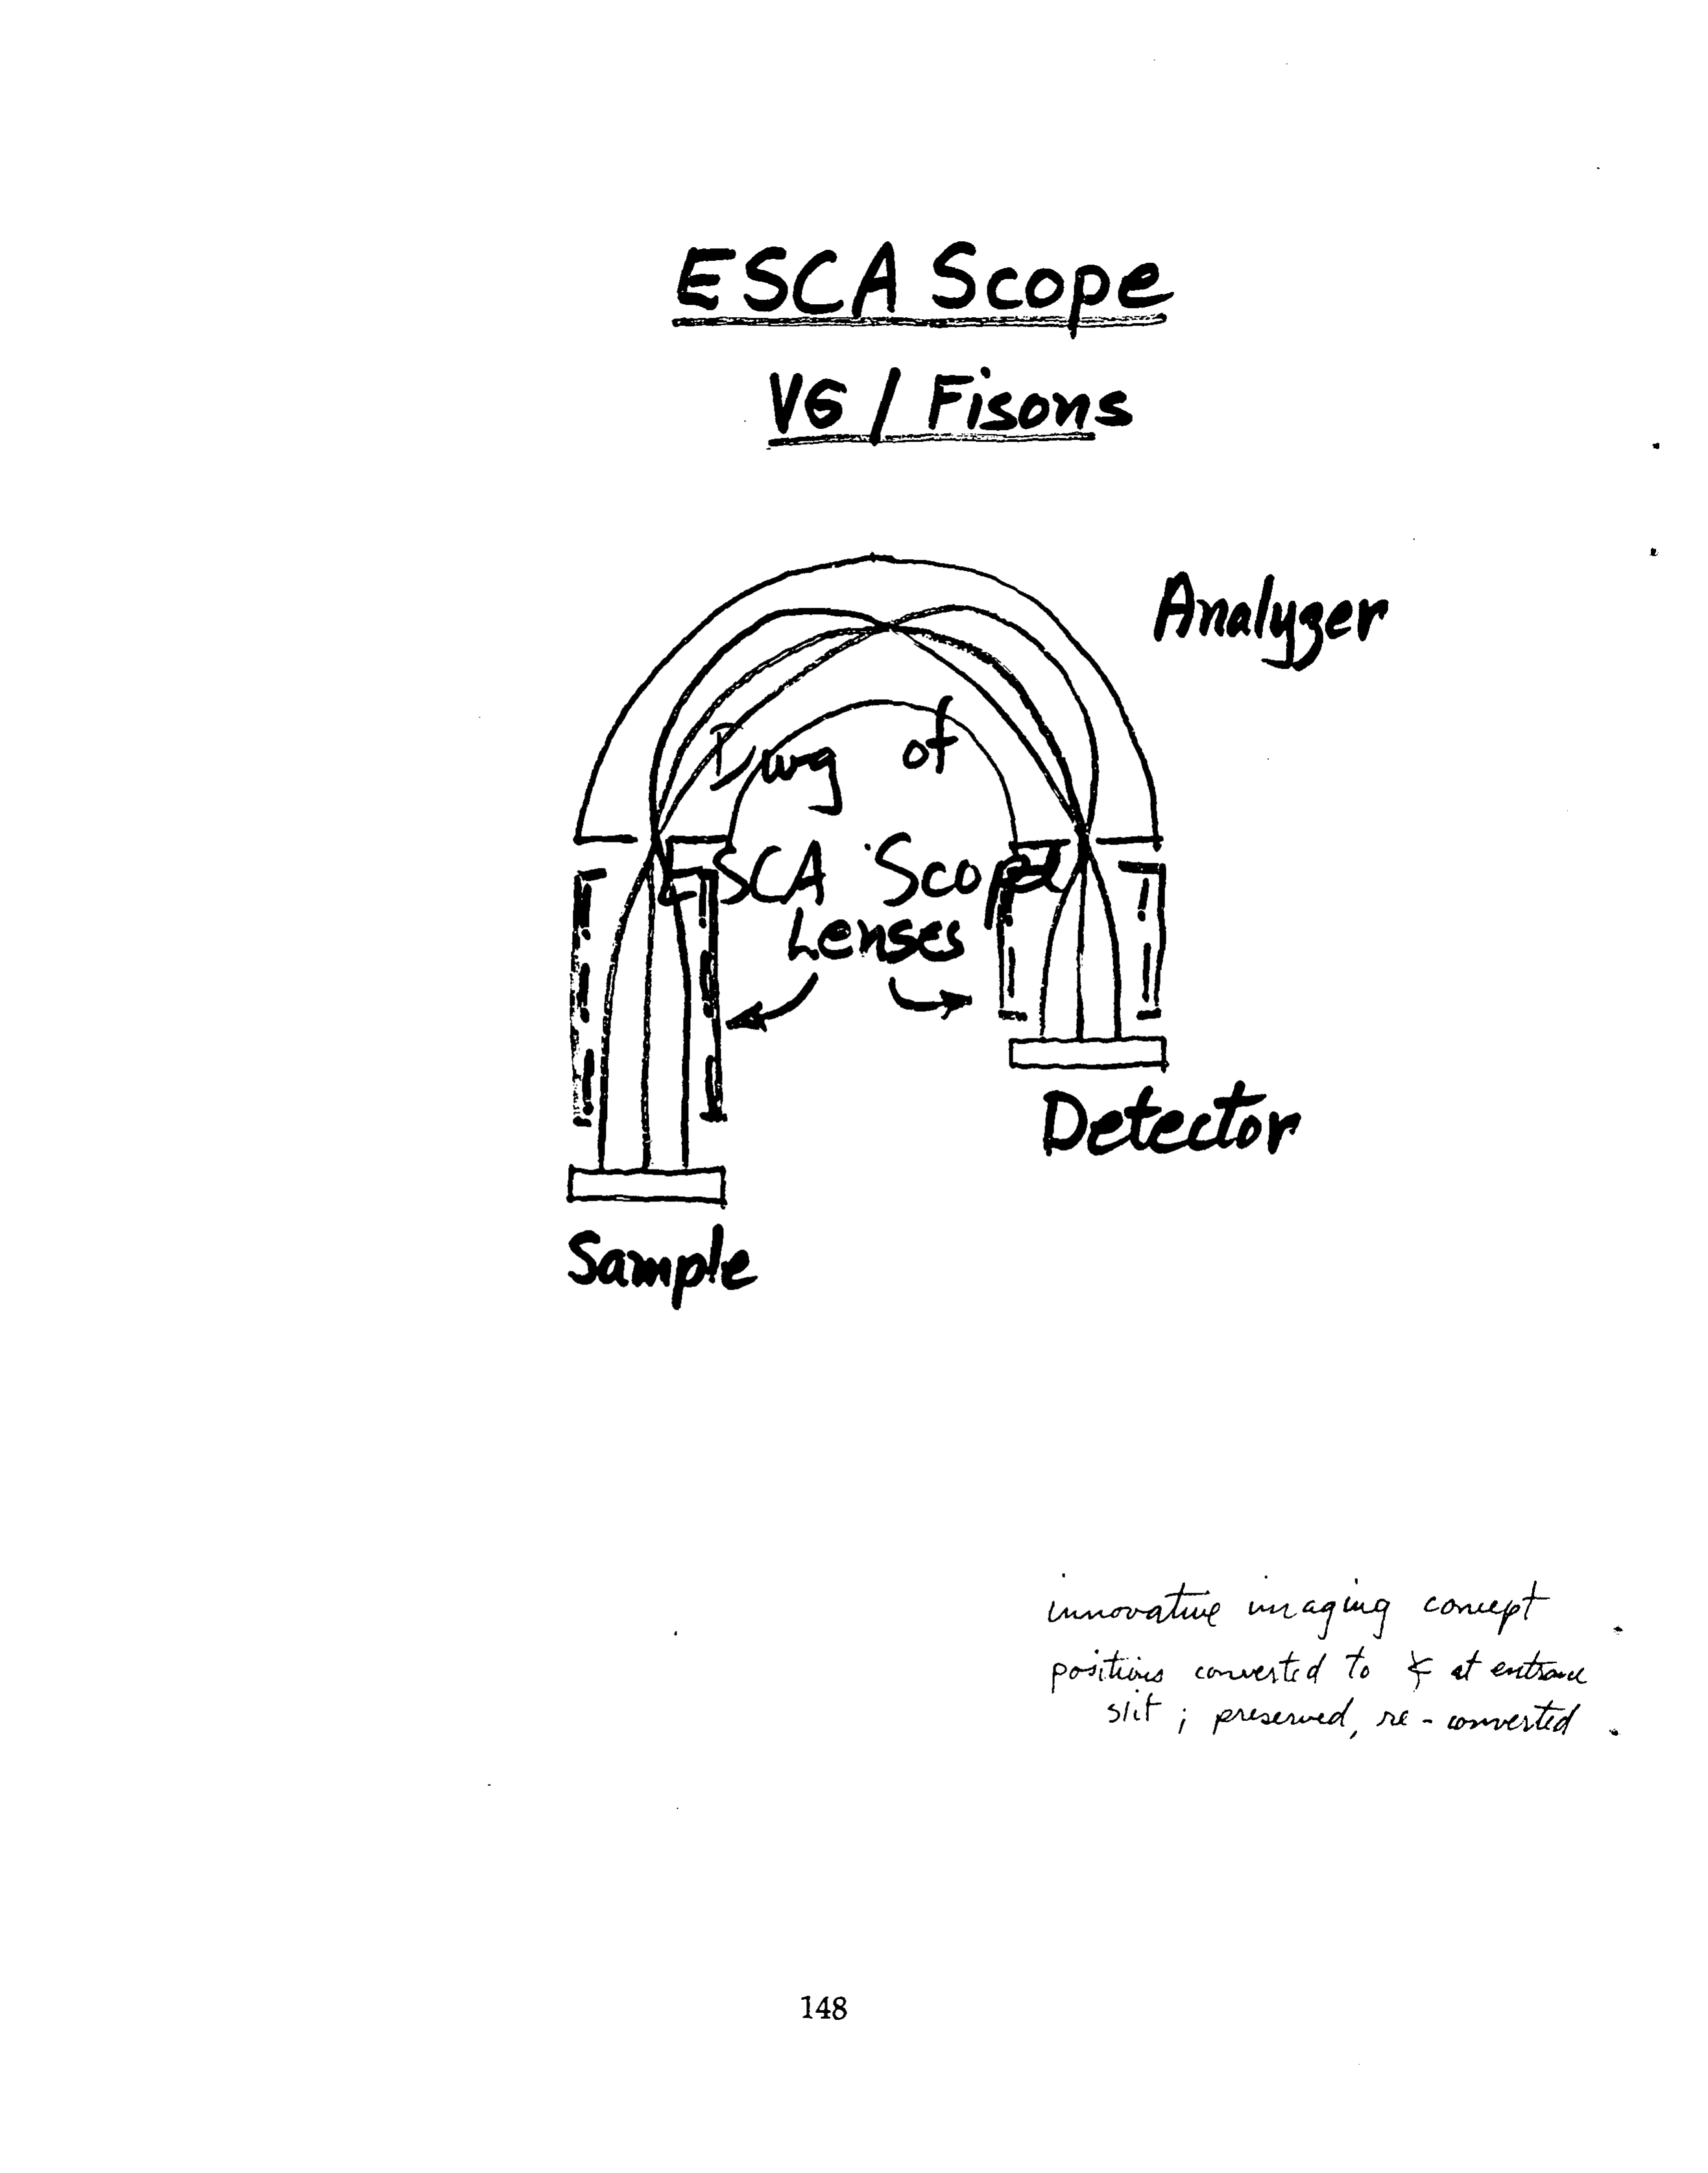 ESCA Scope
VG / Fisons
Analyzer
Dwg of
ESCA Scope
Lenses
Detector
Sample
innovative imaging concept
positions converted to ∡ at entrance
slit ; preserved, re-converted
148